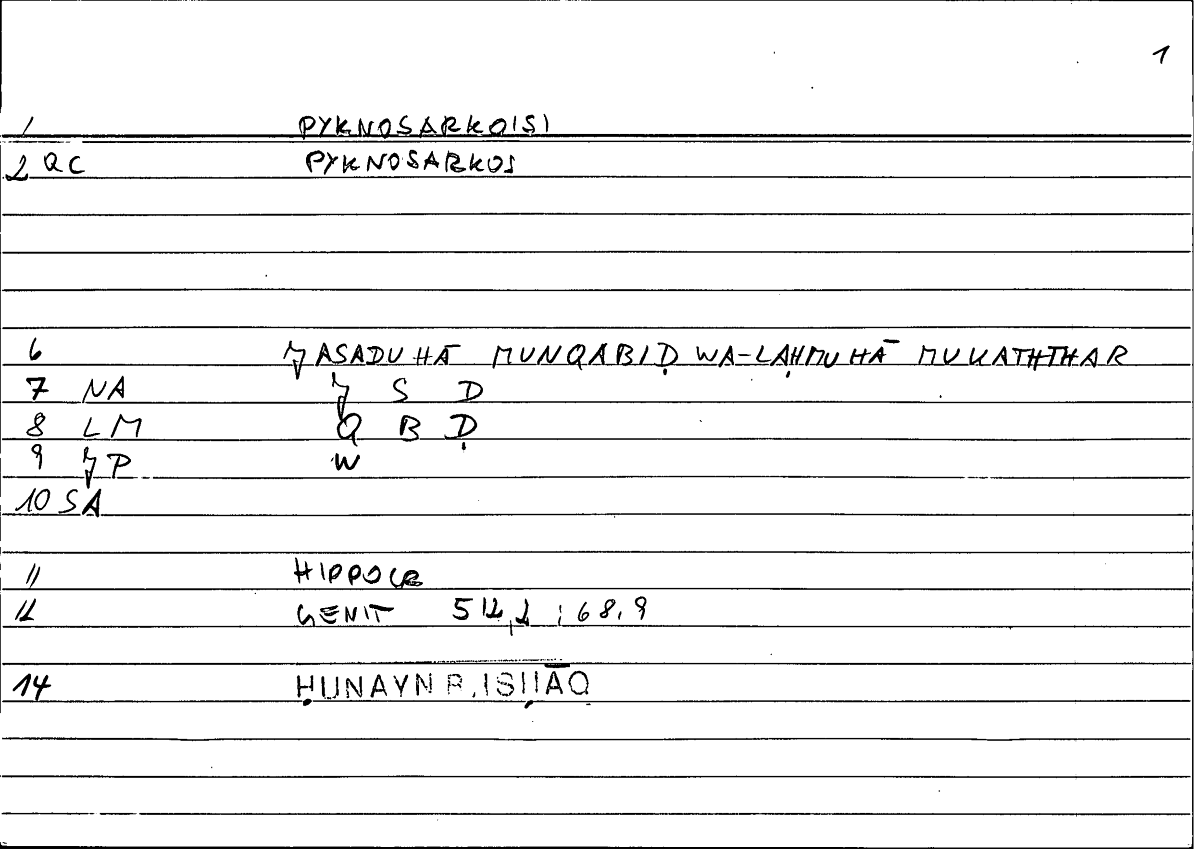 1
1 PYKNOSARKO(S)
2 QC PYKNOSARKOS
6 ǦASADUHĀ MUNQABIḌ WA-LAḤMUHĀ MUKATHTHAR
7 NA Ǧ S D
8 LM Q B Ḍ
9 ǦP W
10 SA
11 HIPPOCR
12 GENIT 512,2 ; 68,9
14 ḤUNAYN B. ISḤĀQ